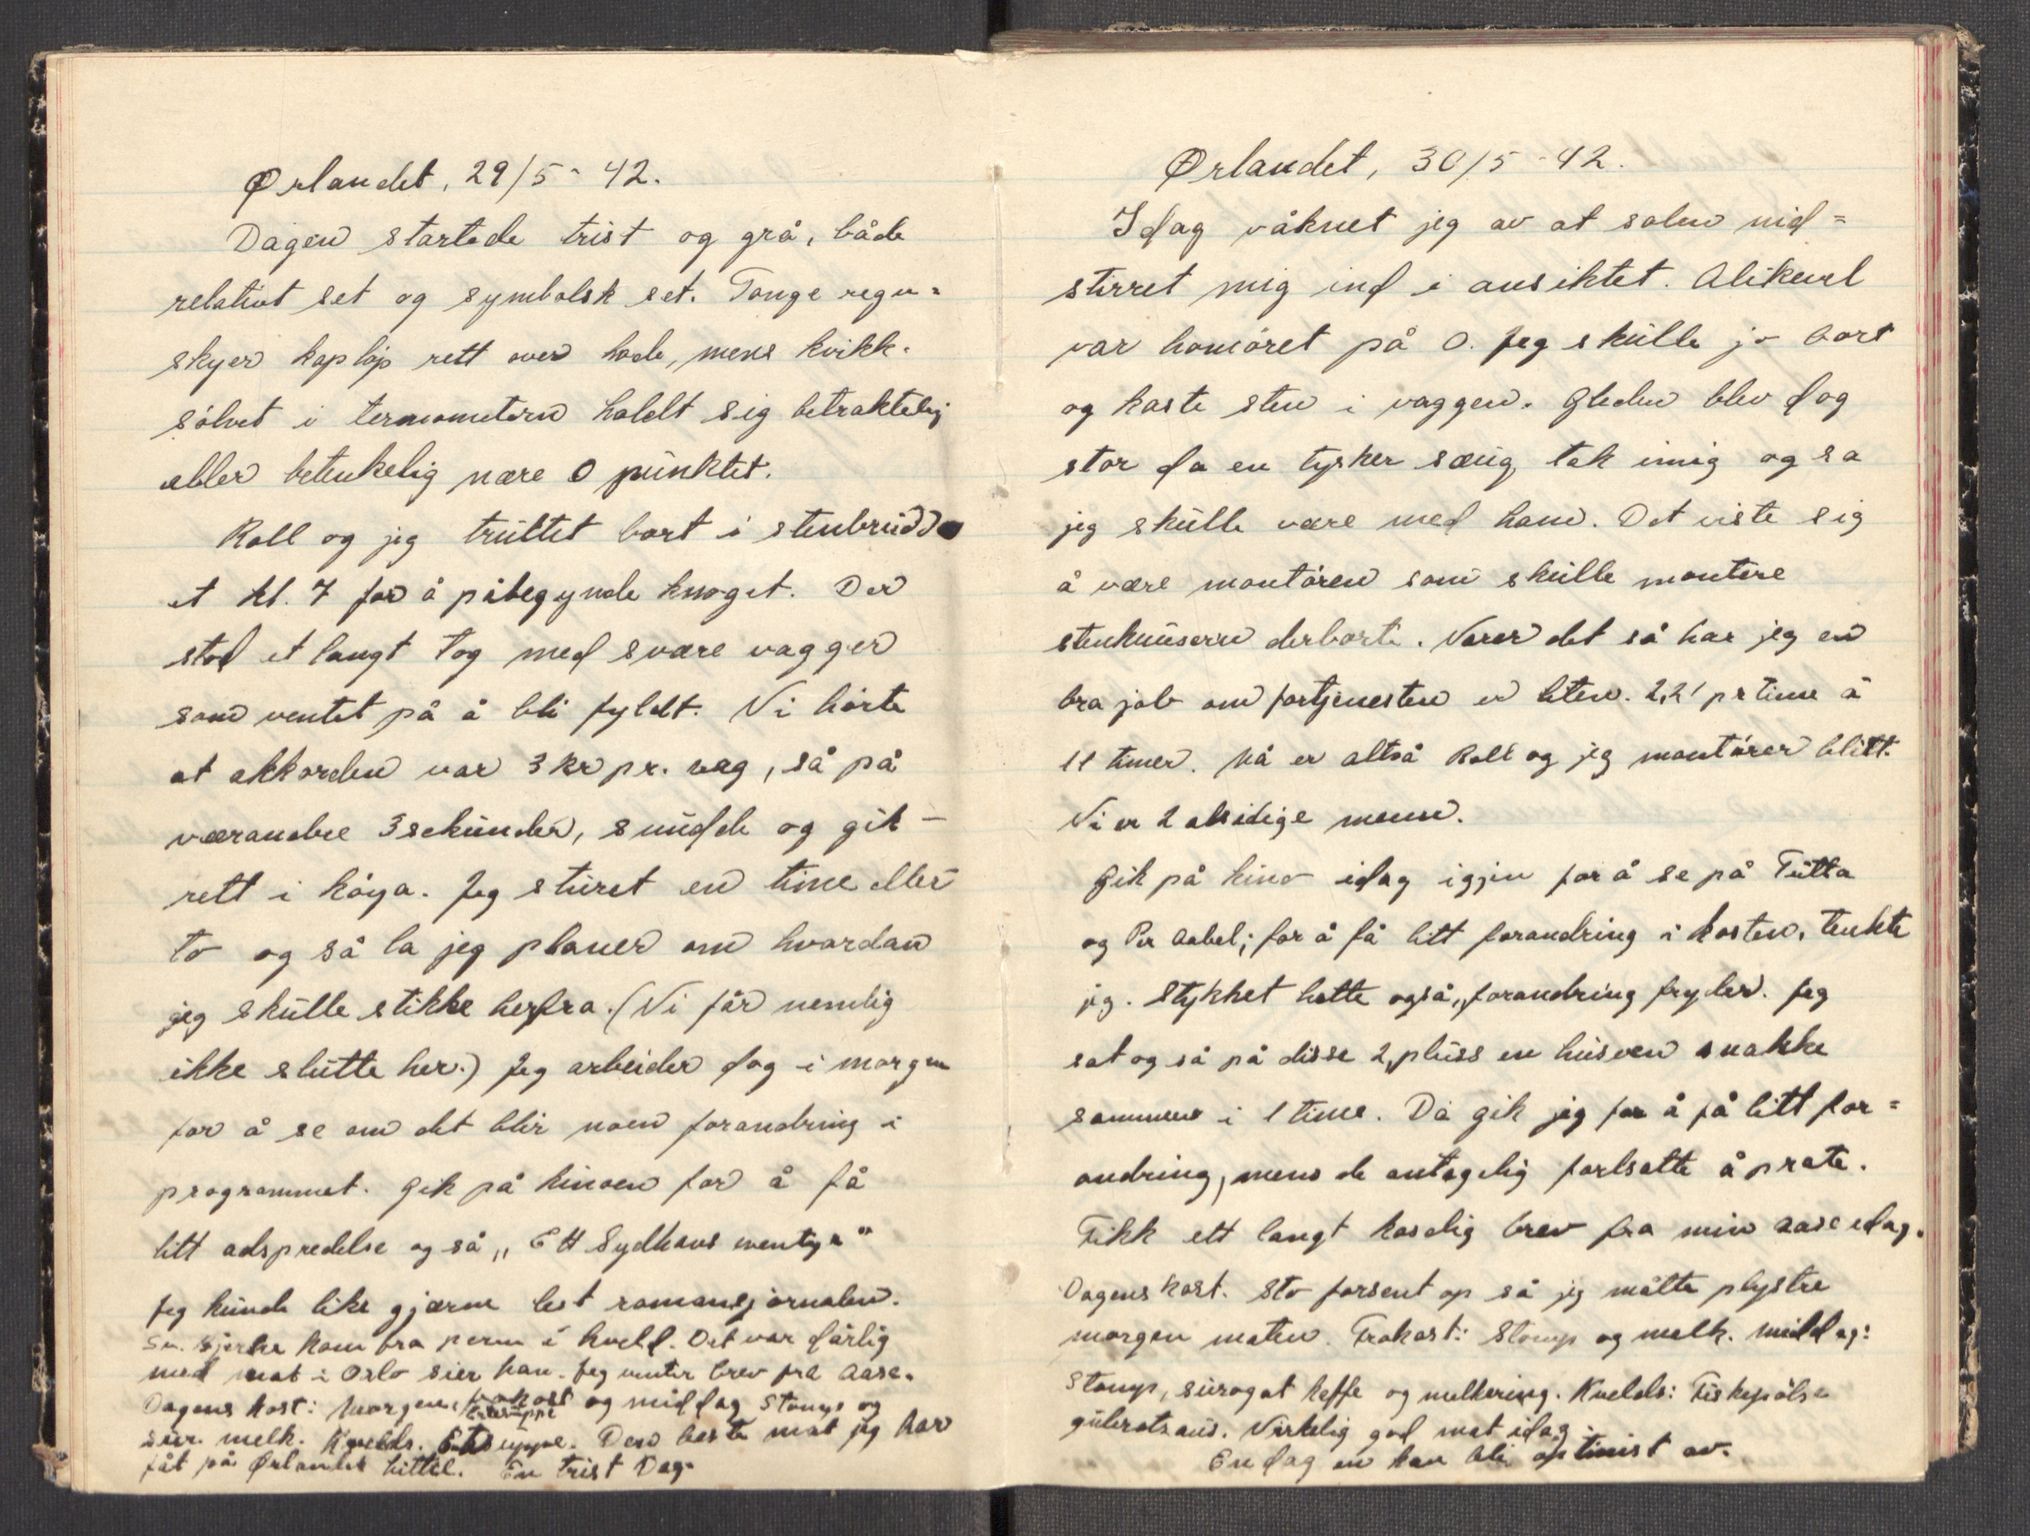 Ørlandet, 29/5 - 42.
Dagen startede trist og grå, både
relativt set og symbolsk set. Tonge regn=
skyer kapløp rett over hode, mens kvikk-
sølvet i termometern holdt sig betraktelig
eller betenkelig nære 0 punktet.
Roll og jeg truttet bort i stenbrudd
et kl. 7 for å påbegynde knoget. Der
stod et langt tog med svære vagger
som ventet på å bli fyldt. Vi hørte
at akkorden var 3 kr pr. vag, så på
værandre 3 sekunder, snudde og gik -
rett i køya. Jeg sturet en time eller
to og så la jeg planer om hvordan
jeg skulle stikke herfra. (Vi får nemlig
ikke slutte her.) Jeg arbeider dog i morgen
for å se om det blir noen forandring i
programmet. Gik på kinoen for å få
litt adspredelse og så „Ett Sydhavs eventyr"
Jeg kunde like gjærne lest romansjornalen.
kom fra perm i kveld. Det var dårlig
med mat i Oslo sier han. Jeg venter brev fra Aase.
Dagens kost: Morgen, frokost og middag Stomp og
sur. melk. Kvelds. Ertesuppe. Den beste mat jeg har
fåt på Ørlandet hittil. En trist Dag.
Ørlandet, 30/5 - 42.
Idag våknet jeg av at solen nid=
stirret mig ind i ansiktet. Alikevel
var homøret på 0. Jeg skulle jo bort
og kaste sten i vaggen. Gleden blev dog
stor da en tysker sænig tok imig og sa
jeg skulle være med ham. Det viste sig
å være montøren som skulle montere
stenknusern derborte. Varer det så har jeg en
bra job om fortjenesten er liten. 1,21 pr time á
11 timer. Nå er altså Roll og jeg montører blitt.
Vi er 2 alsidige menn.
Gik på kino idag igjen for å se på Tutta
og Per Aabel; for å få litt forandring i kosten, tenkte
jeg. Stykket hette også „forandring fryder. Jeg
sat og så på disse 2, pluss en husven snakke
sammen i 1 time. Da gik jeg for å få litt for=
andring, mens de antagelig fortsatte å prate.
Fikk ett langt koselig brev fra min Aase idag.
Dagens kost. Sto forsent op så jeg måtte plystre
morgen maten. Frokost: Stomp og melk. Middag:
Stomp, surogat kaffe og melkering. Kvelds: Fiskepølse
gulerotsaus. Virkelig god mat idag.
En dag en kan bli optimist av.